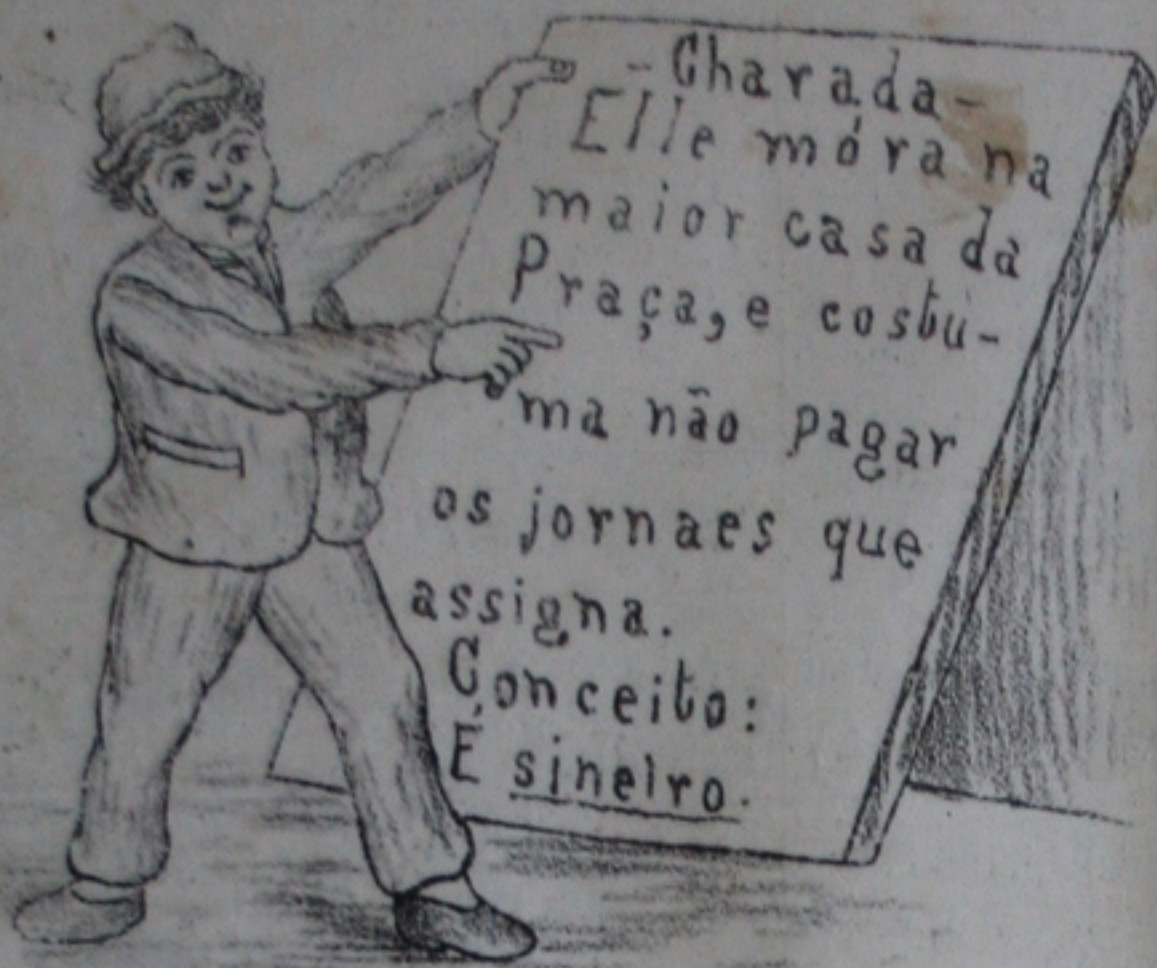 - Charada -
Elle móra na
maior casa da
Praça, e costu-
ma não pagar
os jornaes que
assigna.
Conceito:
É sineiro.